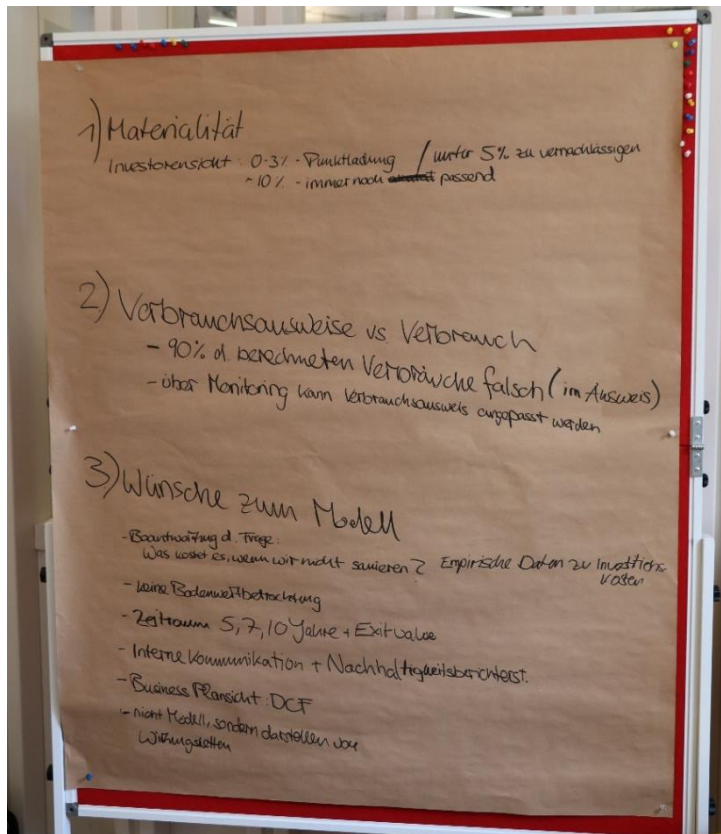 1) Materialität
Investorensicht: 0-3% - Punktladung / unter 5% zu vernachlässigen
~10% - immer noch passend
2) Verbrauchsausweise vs Verbrauch
- 90% d. berechneten Verbräuche falsch (im Ausweis)
- über Monitoring kann Verbrauchsausweis angepasst werden
3) Wünsche zum Modell
- Beantwortung d. Frage:
Was kostet es, wenn wir nicht sanieren? Empirische Daten zu Investitions-
kosten
- keine Bodenwertbetrachtung
- Zeitraum 5, 7, 10 Jahre + Exit value
- Interne Kommunikation + Nachhaltigkeitsberichterst.
- Business Plansicht: DCF
- nicht Modell, sondern darstellen von
Wirkungsketten